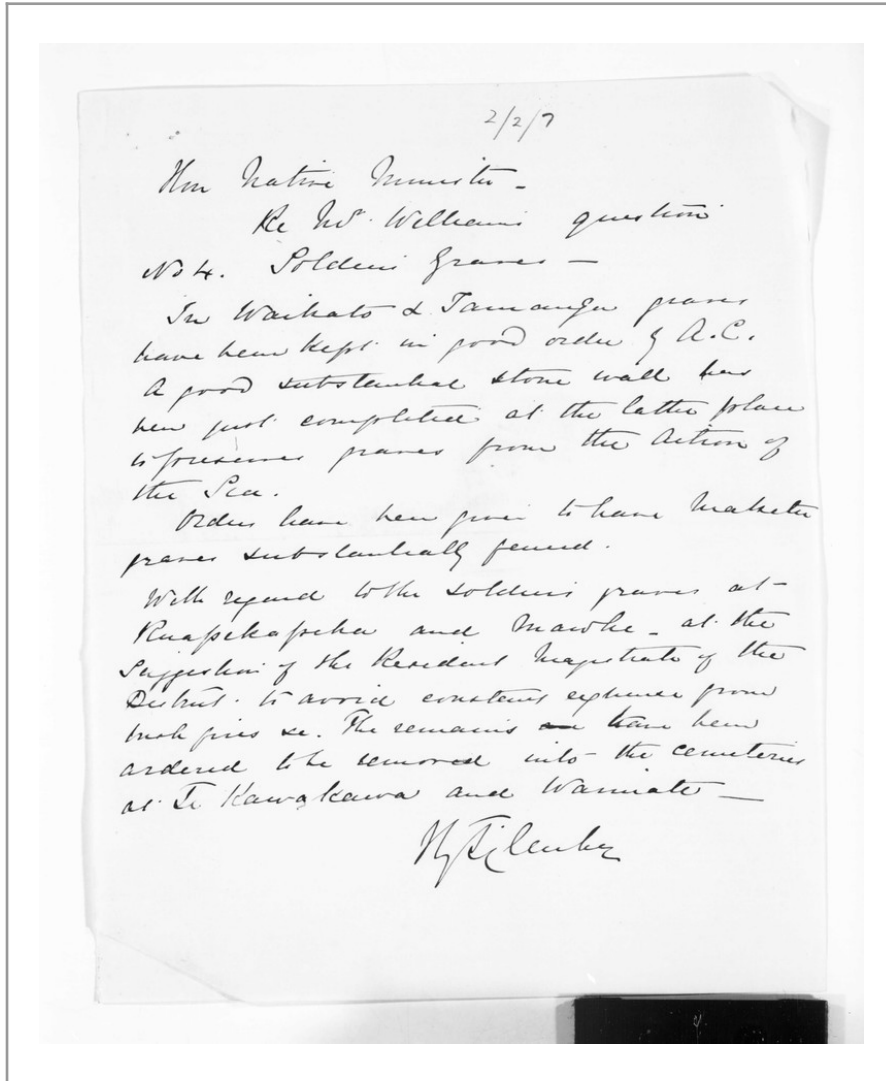 2/2/7
Hon Native Minister -
Re Mr. Williams question
No 4. Soldiers Graves -
In Waikato & Tauranga graves
have been kept in good order by A.C.
A good substantial stone wall has
been just completed at the latter place
to preserve graves from the Action of
the Sea.
Orders have been given to have Maketu
graves substantially fenced.
With regard to the soldiers graves at
Ruapekapeka and Mawhe - at the
Suggestion of the Resident Magistrate of the
District. to avoid constant expense from
bush fires &c. The remains have been
ordered to be removed into the cemeteries
at Te Kawakawa and Waimate -